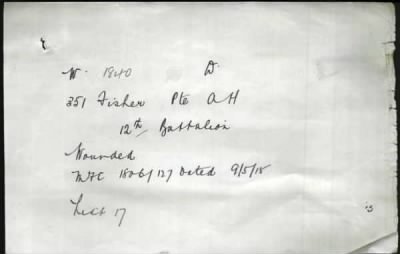 W. 1840 D.
351 Fisher Pte A H
12th Battalion
Wounded
MFC 1806/127 Dated 9/5/15
List 17